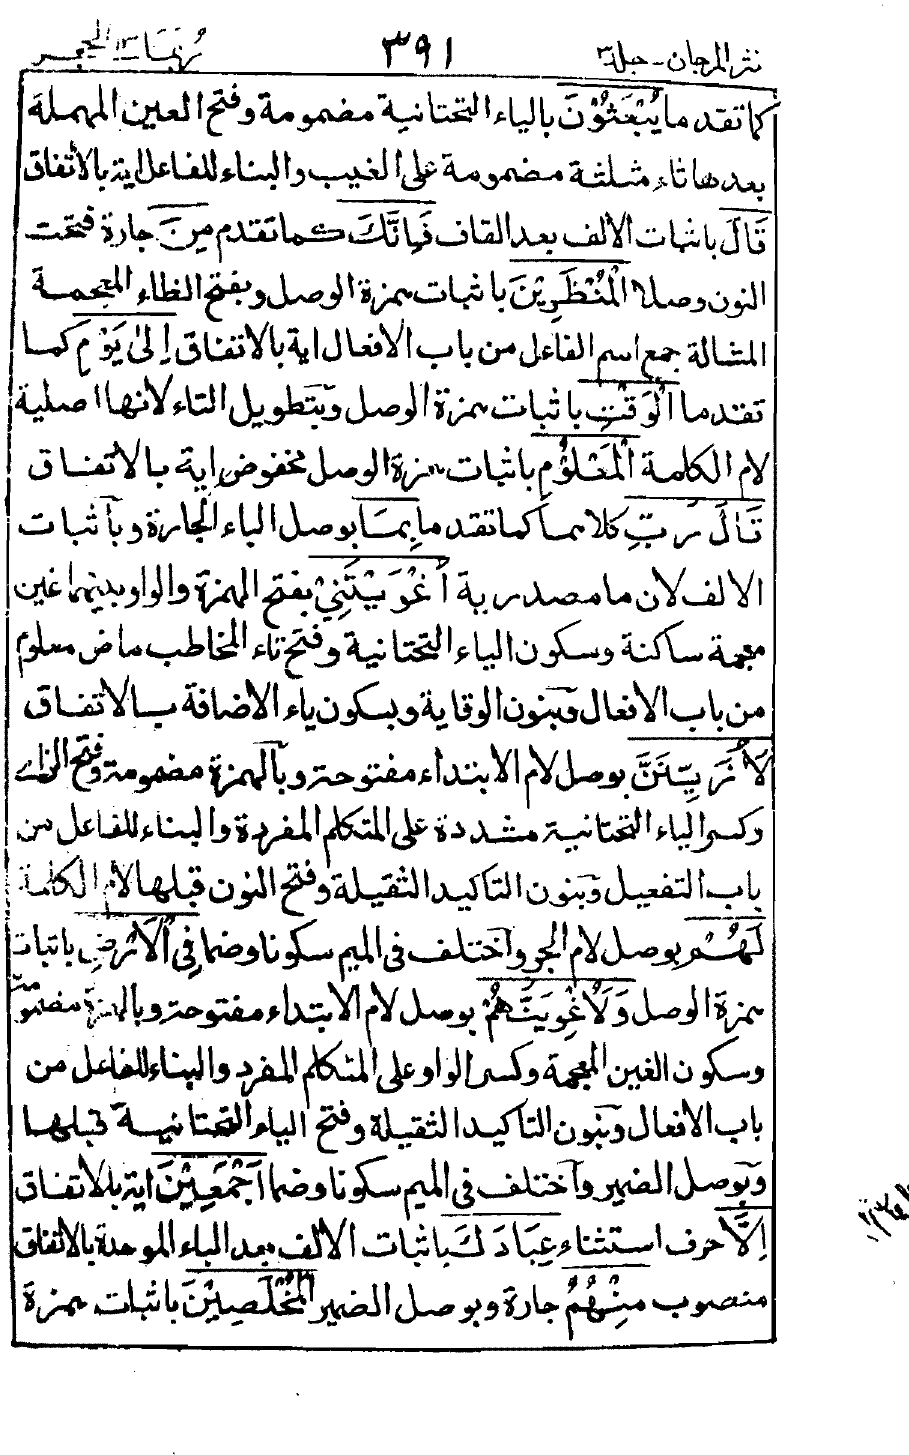 نثر المرجان - جلد ٣ ٣٩١ ربما ١٤ الحجر
كما تقدم ما يُبْعَثُوْنَ بالياء التحتانية مضمومة وفتح العين المهملة
بعدها ثاء مثلثة مضمومة على الغيب والبناء للفاعل اية بالاتفاق
قَالَ باثبات الالف بعد القاف فَاِنَّكَ كما تقدم مِنَ جارة فتحت
النون وصلا الْمُنْظَرِيْنَ باثبات همزة الوصل وبفتح الظاء المعجمة
المشالة جمع اسم الفاعل من باب الافعال اية بالاتفاق اِلىٰ يَوْمِ كما
تقدم ما الْوَقْتِ باثبات همزة الوصل وبتطويل التاء لانها اصلية
لام الكلمة الْمَعْلُوْمِ باثبات همزة الوصل مخفوض اية بالاتفاق
قَالَ رَبِّ كلاهما كما تقدم ما بِمَا بوصل الباء الجارة وباثبات
الالف لان ما مصدرية اَغْوَيْتَنِيْ بفتح الهمزة والواو بينهما غين
معجمة ساكنة وسكون الياء التحتانية وفتح تاء المخاطب ماض معلوم
من باب الافعال وبنون الوقاية وبسكون ياء الاضافة بالاتفاق
لَاُزَيِّنَنَّ بوصل لام الابتداء مفتوحة وبالهمزة مضمومة وفتح الزاے
وكسر الياء التحتانية مشددة على المتكلم المفردة والبناء للفاعل من
باب التفعيل وبنون التاكيد الثقيلة وفتح النون قبلها لام الكلمة
لَهُمْ بوصل لام الجر واختلف فى الميم سكونا وضما فِي الْاَرْضِ باثبات
همزة الوصل وَلَاُغْوِيَنَّهُمْ بوصل لام الابتداء مفتوحة وبالهمزة مضمومة
وسكون الغين المعجمة وكسر الواو على المتكلم المفرد والبناء للفاعل من
باب الافعال وبنون التاكيد الثقيلة وفتح الياء التحتانية قبلها
وبوصل الضمير واختلف فى الميم سكونا وضما اَجْمَعِيْنَ اية بلاتفاق
اِلَّا حرف استثناء عِبَادَكَ باثبات الالف بعد الباء الموحدة بالاتفاق
منصوب مِنْهُمُ جارة وبوصل الضمير الْمُخْلَصِيْنَ باثبات همزة